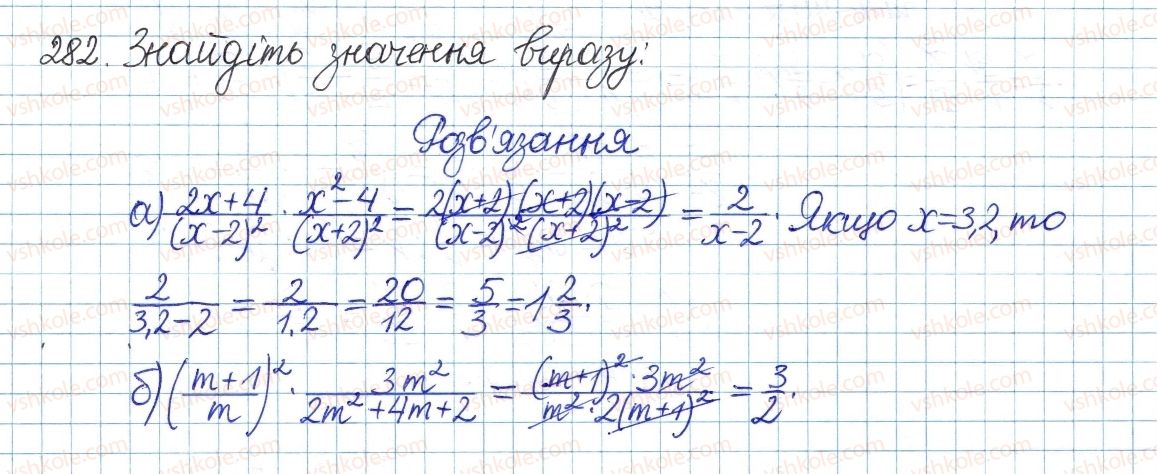 282. Знайдіть значення виразу:
Розв'язання
а) (2x+4)/(x-2)² · (x²-4)/(x+2)² = 2(x+2)(x+2)(x-2)/(x-2)²(x+2)² = 2/(x-2). Якщо x=3,2, то
2/(3,2-2) = 2/1,2 = 20/12 = 5/3 = 1 2/3.
б) ((m+1)/m)² · 3m²/(2m²+4m+2) = (m+1)²·3m²/m²·2(m+1)² = 3/2.
vshkole.com